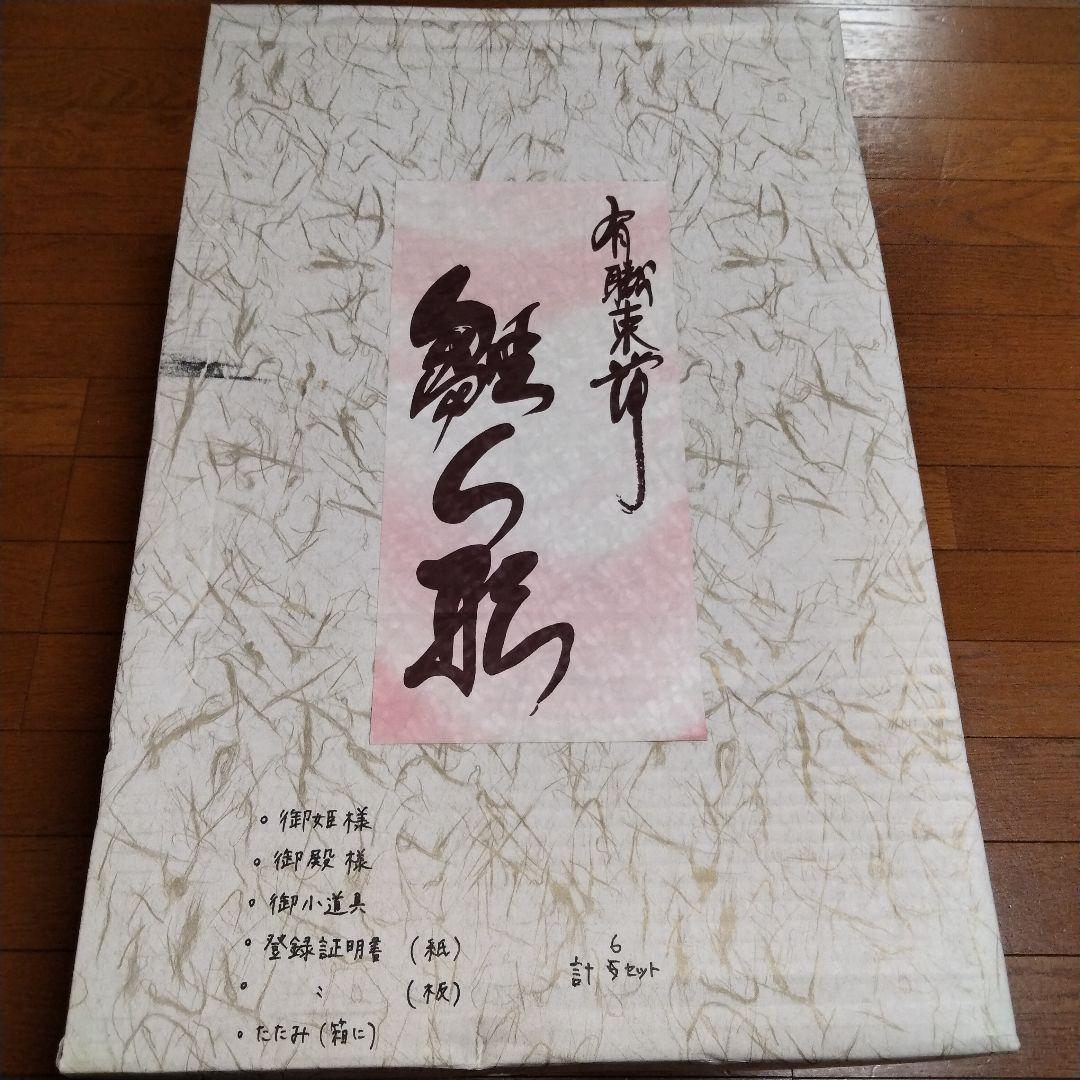 有職束帯
雛人形
。御姫様
。御殿様
。御小道具
。登録証明書 (紙)
。 〃 (板)
。たたみ(箱に)
6
計 5セット